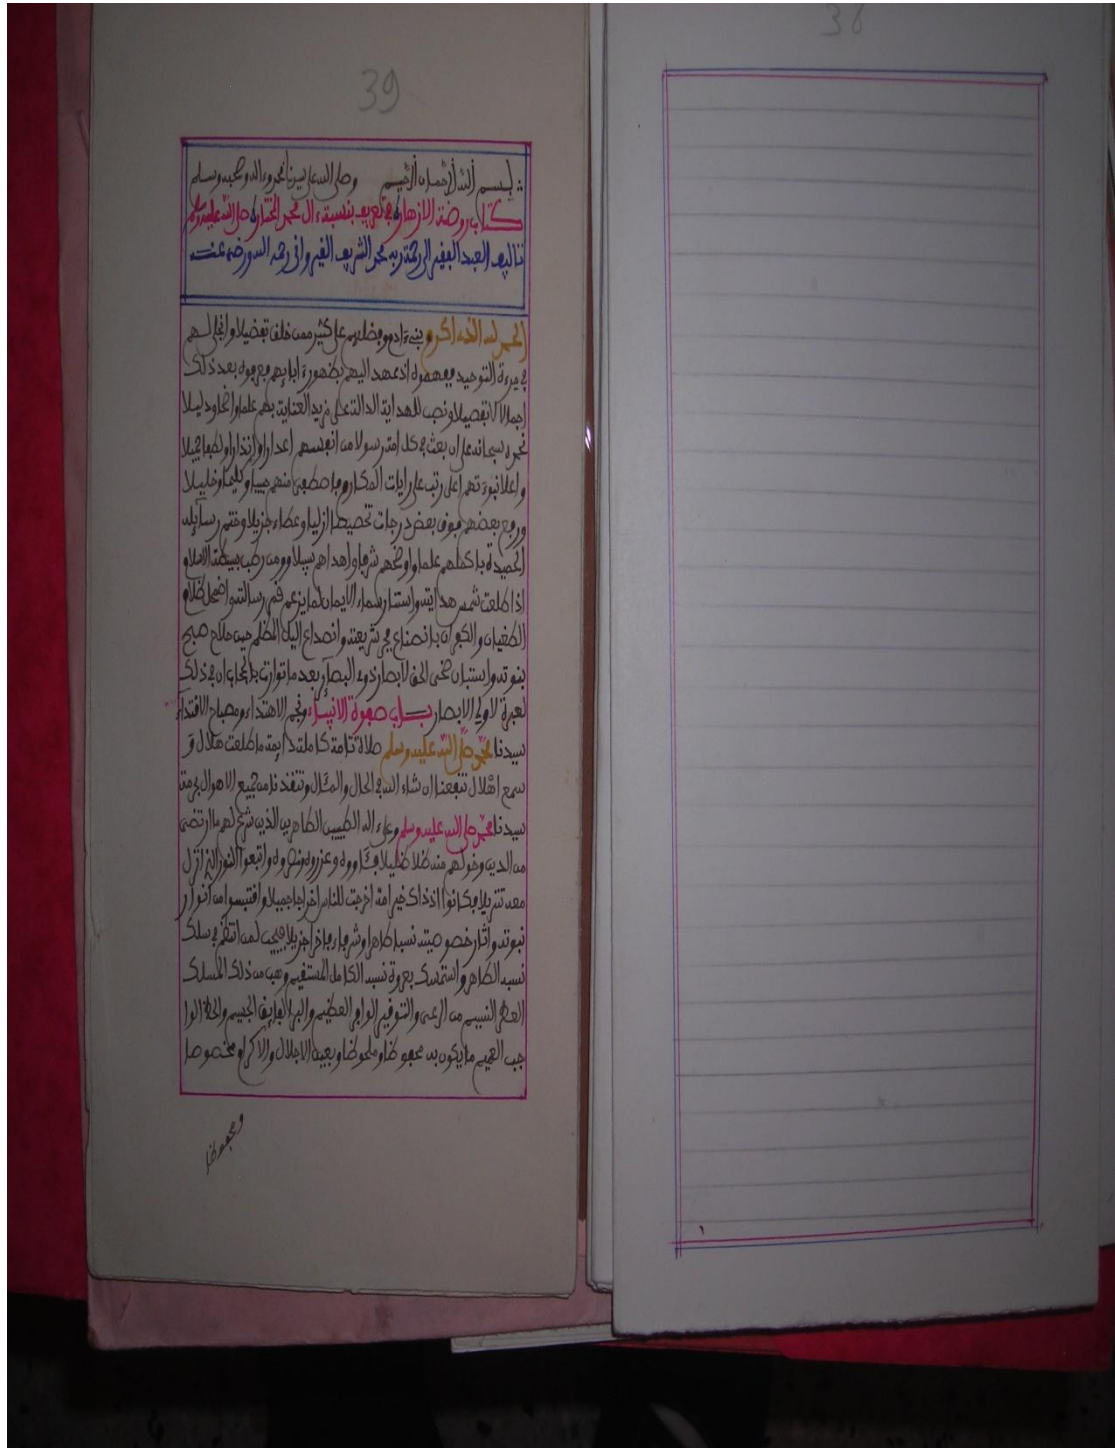 36
39
بسم الله الرحمان الرحيم وصلى الله على سيدنا محمد وءاله وصحبه وسلم
كتاب روضة الازهار في تعريف بنسبة ءال محمد المختار صلى الله عليه وسلم
تاليف العبد الفقير الى رحمة ربه محمد الشريف القيرواني رحمه الله ورضي عنه
الحمد لله الذي اكرم بنيءادم وفضلهم على كثير ممن خلف تفضيلا وانجا لهم
في مرءة التوحيد اذ عهد اليهم بظهورء ابايهم بعد ذلك
اجمالا لا تفصيلا ونصب للهداية الدالة على مزيد العناية بهم علما واضحا ودليلا
نحمده سبحانه على ان بعث في كل امة رسولا من انفسهم اعذارا وانذارا ولطفا جميلا
واعلا نبوءتهم اعلى رتب على رايات المكارم واصطفى منهم حبيبا وكليما وخليلا
ورفع بعضهم فوق بعض درجات تخصيصا ازليا وعطاء جزيلا وختم رسايله
الحميدة باكملهم علما واوضحهم شرفا واهداهم سبيلا
اذا طلعت شمس هدايته واستنار سماء الايمان رسالته واضمحل ظلام
الطغيان والكفران شريعته وانصداع اليل المظلم حين صبح
نبوته واستبان ضحى الحق لابصار ذوي البصاير بعد ما توارت بالحجاب ان في ذلك
لعبرة لاولي الابصار صفوة الانبياء ونجم الاهتداء ومصباح الاقتداء
سيدنا محمد صلى الله عليه وسلم صلاة تامة كاملة دايمة ما طلعت هلال و
سمع اهلال تنفعنا ان شاء الله في الحال والمئال وتنقذنا من جميع الاهوال
سيدنا محمد صلى الله عليه وسلم وعلى ءاله الطيبين الطاهرين الذين شرع لهم ما ارتضى
من الدين وخولهم منه ظلا ظليلا وعزروه ونصروه واتبعوا النور الذي انزل
معه تنزيلا فكانوا اذ ذاك خير امة اخرجت للناس اخراجا جميلا واقتبسوا من انوار
نبوته واثار خصوصيته نسبا طاهرا وشرفا جزيلا فيجب لمن انتظم في سلك
نسبه الطاهر واستمسك بعروة نسبه الكامل المستقيم وهب من ذلك المسلك
العطر النسيم من الرعي والتوقير الوافر العظيم والبر الفايق الجسيم والحظ الوا
جب العميم ما يكون به محفوظا وملحوظا وبعين الاجلال والاكرام مخصوصا
ومحفوظا